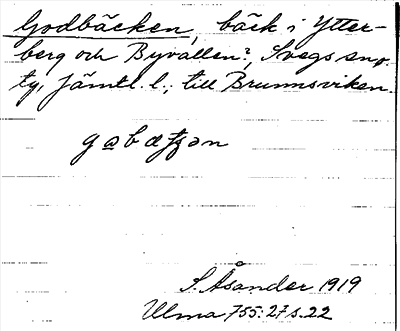 Godbäcken, bäck i Ytter-
berg och Byvallen?, Svegs sn o.
tg, Jämtl. l.; till Brunnsviken.
S. Åsander 1919
Ulma 755:27 s. 22